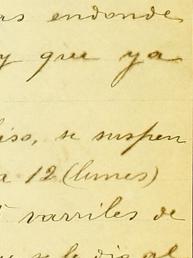 as endonde
y que ya
iso, se suspen
a 12 (lunes)
varriles de